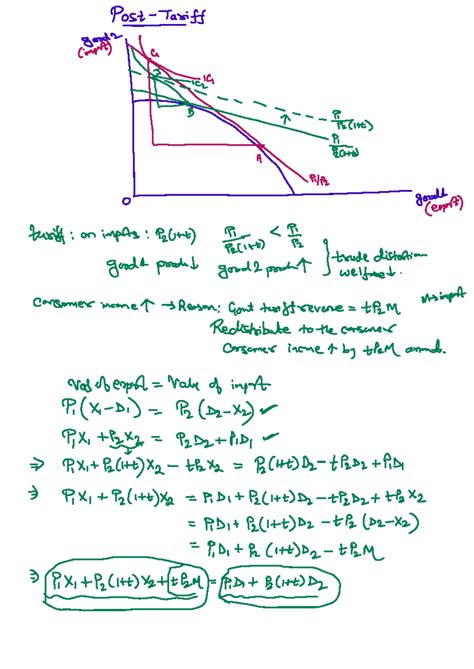 Post-Tariff
good 2
(import)
C₁
C₂
IC₁
IC₂
B
A
P₁/P₂(1+t)
P₁/P₂(1+t)
P₁/P₂
O
good 1
(export)
tariff: on imports: P₂(1+t) P₁/P₂(1+t) < P₁/P₂
good 1 prodn↓ good 2 prodn↑ } trade distortion
welfare↓.
Consumer income↑ → Reason: Govt tariff revenue = tP₂M M→import
Redistribute to the consumer
Consumer income ↑ by tP₂M
Val of export = Value of import
P₁(X₁-D₁) = P₂(D₂-X₂) ✓
P₁X₁+P₂X₂ = P₂D₂+P₁D₁ ✓
⇒ P₁X₁+P₂(1+t)X₂-tP₂X₂ = P₂(1+t)D₂-tP₂D₂+P₁D₁
⇒ P₁X₁+P₂(1+t)X₂ = P₁D₁+P₂(1+t)D₂-tP₂D₂+tP₂X₂
= P₁D₁+P₂(1+t)D₂-tP₂(D₂-X₂)
= P₁D₁+P₂(1+t)D₂-tP₂M
⇒ P₁X₁+P₂(1+t)X₂+tP₂M = P₁D₁+P₂(1+t)D₂